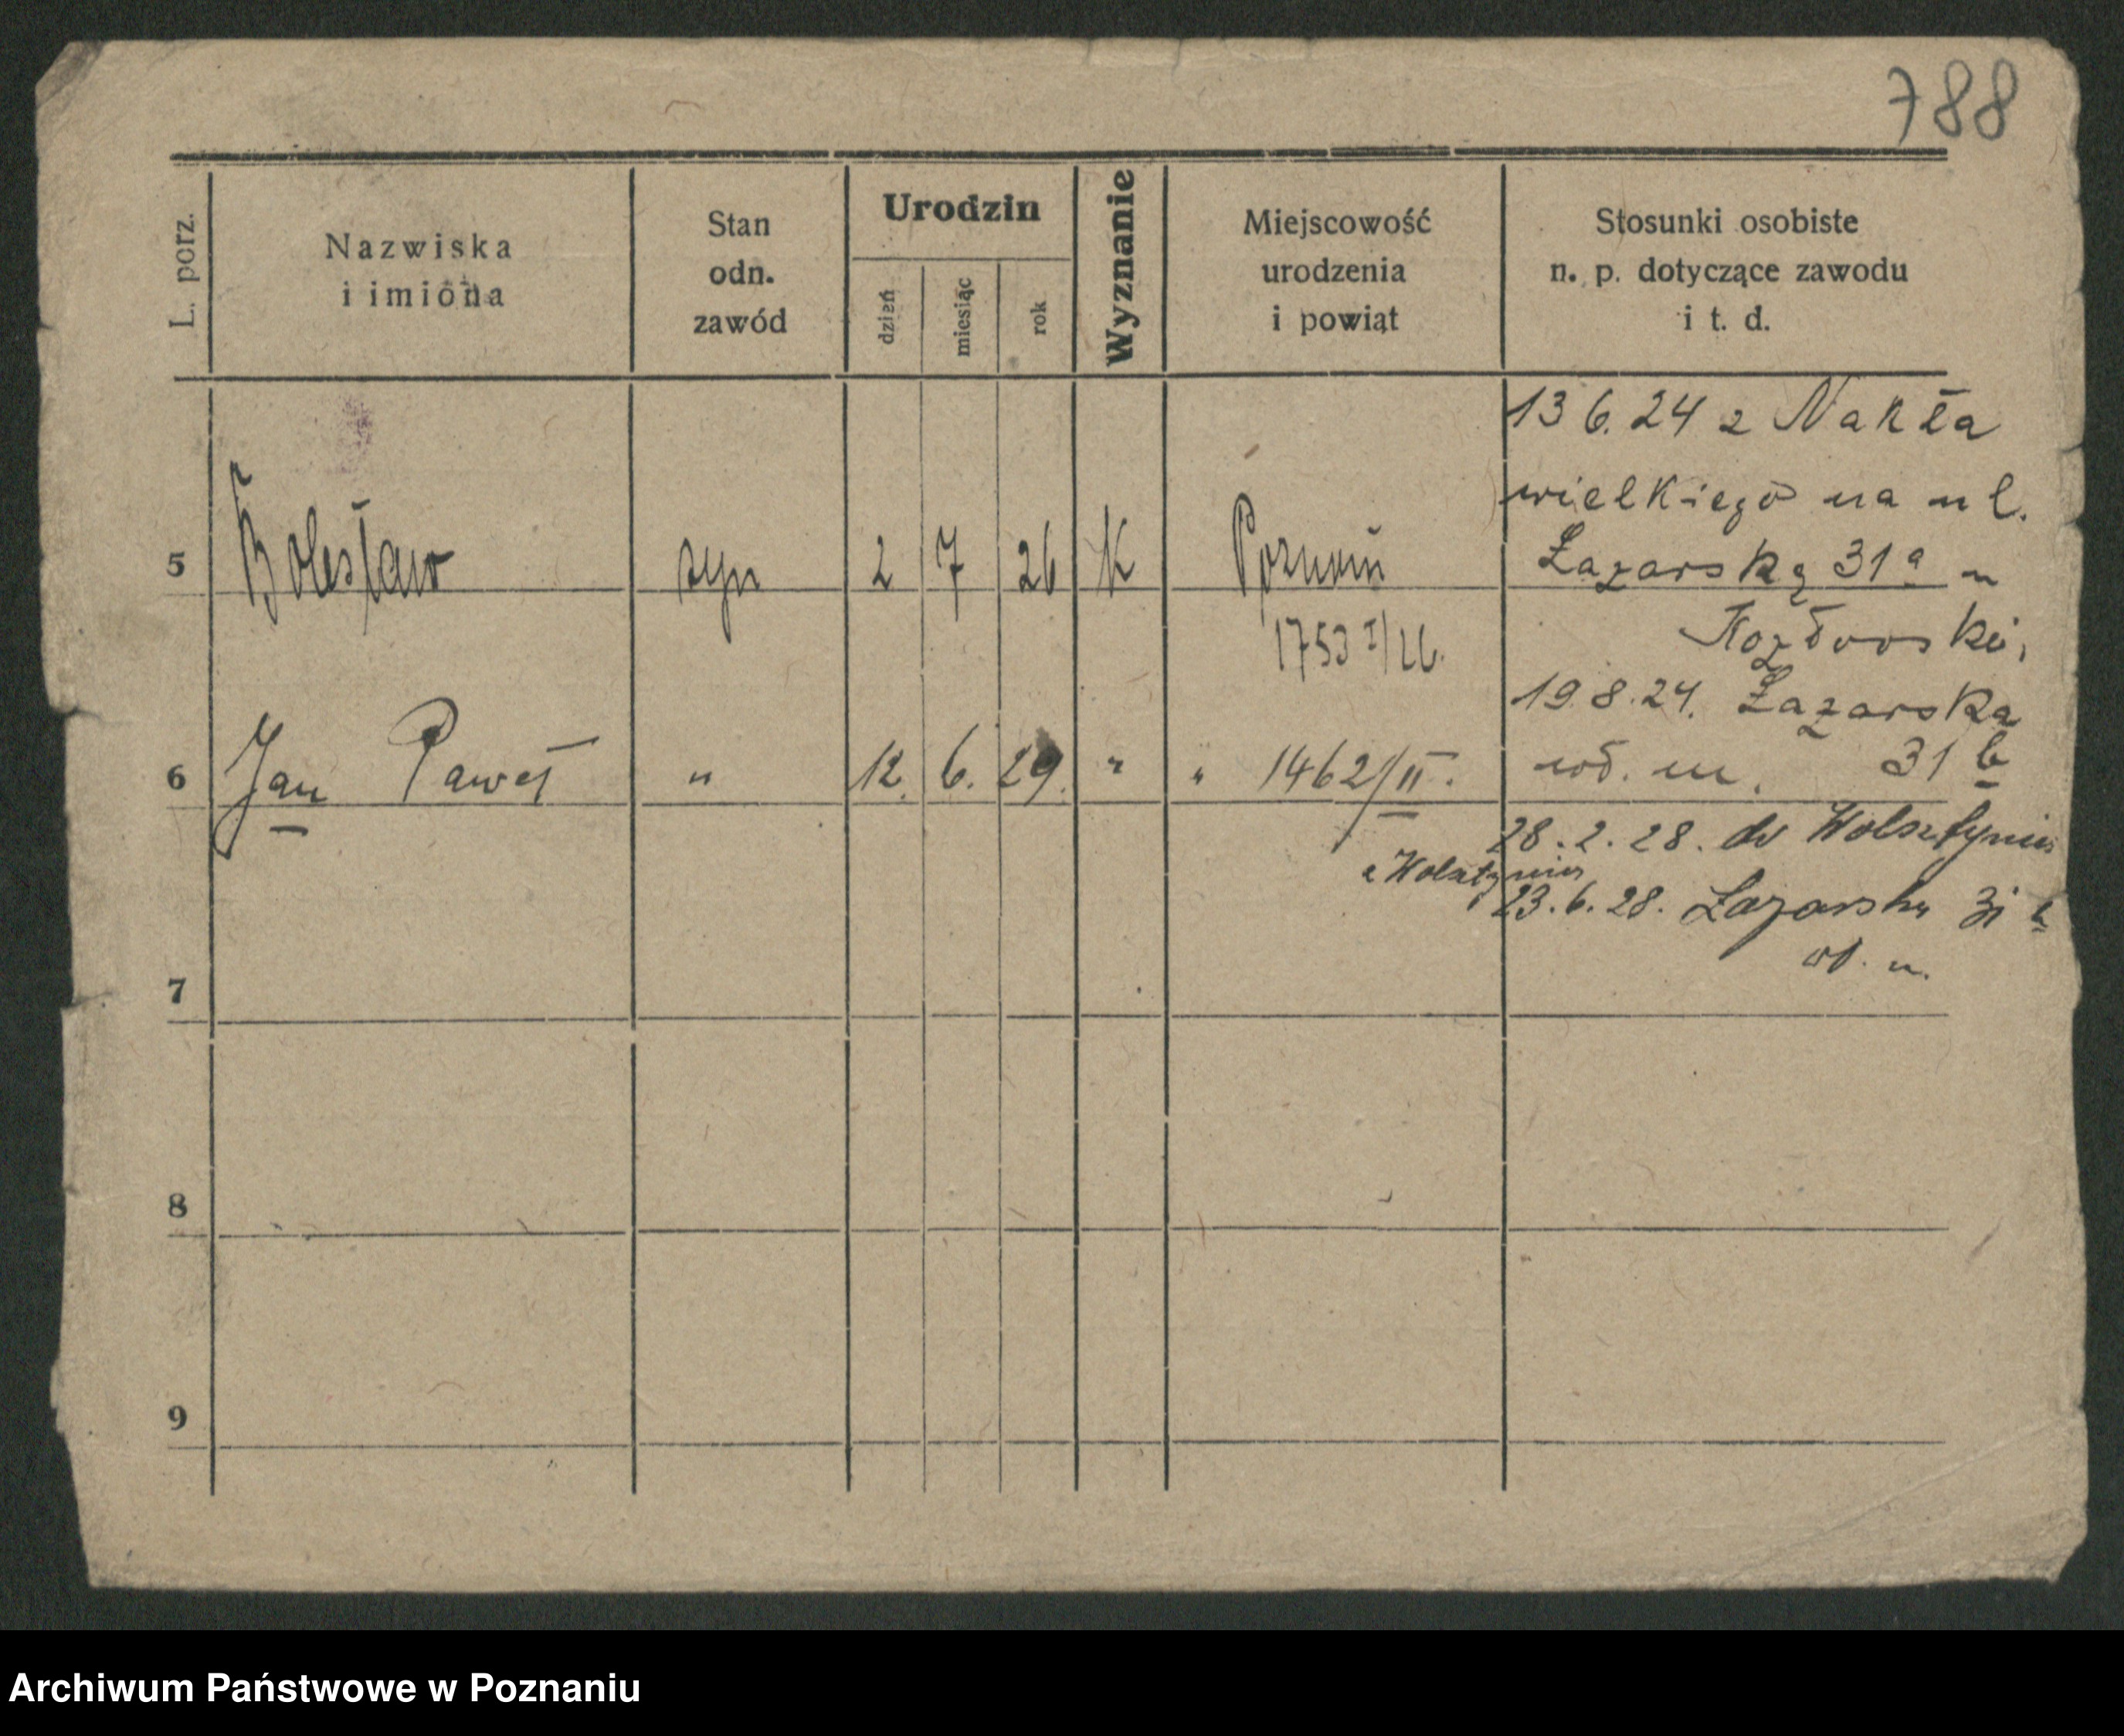 788
L. porz.
Nazwiska
i imiona
Stan
odn.
zawód
Urodzin
dzień
miesiąc
rok
Wyznanie
Miejscowość
urodzenia
i powiąt
Stosunki osobiste
n. p. dotyczące zawodu
i t. d.
13 6. 24 z Nakła
wielkiego na ul.
5 Bolesław syn 2 7 26 K Poznań
Łazarską 31a u
1753 I/26.
Kozłowski,
19.8.24. Łazarska
6 Jan Paweł " 12. 6. 29. " " 1462/II.
wł. m. 31 b
28.2.28. do Wolsztynia
z Wolsztynia
23.6.28. Łazarska 31 b
wł. m.
7
8
9
Archiwum Państwowe w Poznaniu